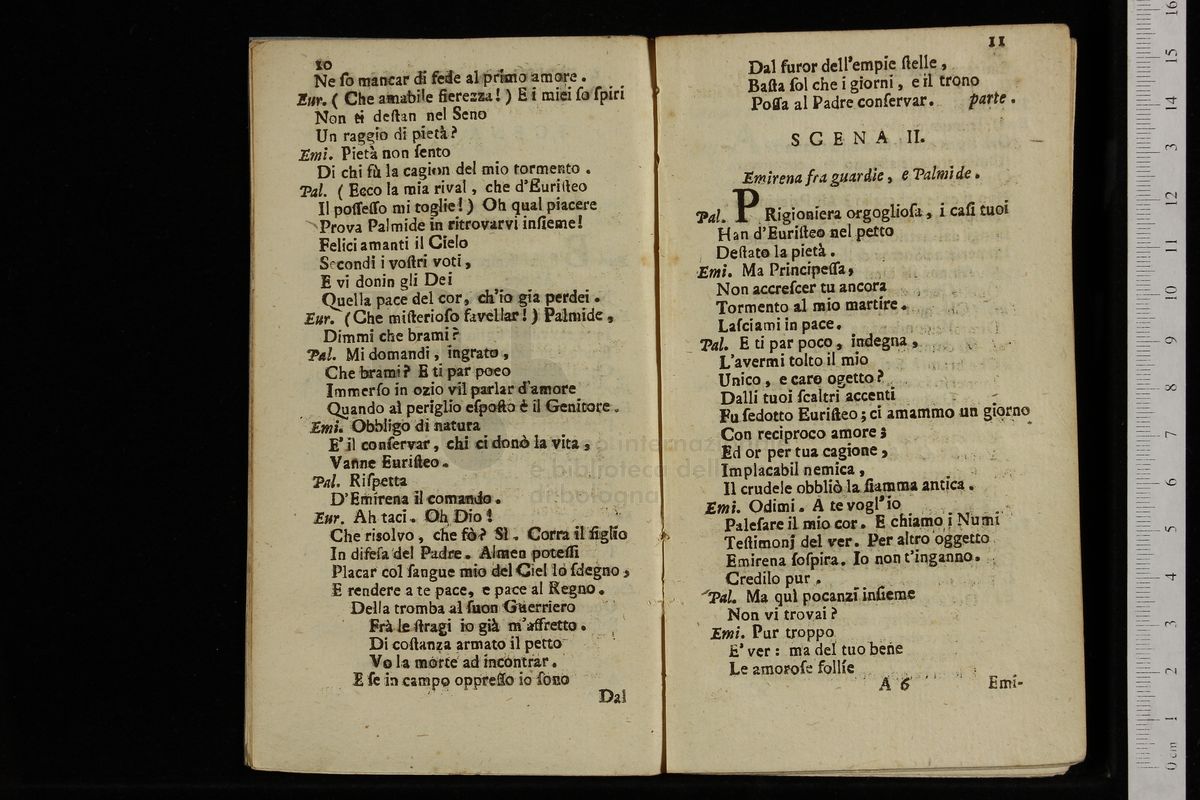 10
Ne ſo mancar di fede al primo amore.
Eur. ( Che amabile fierezza! ) E i miei ſo ſpiri
Non ti deſtan nel Seno
Un raggio di pietà?
Emi. Pietà non ſento
Di chi fù la cagion del mio tormento.
Pal. ( Ecco la mia rival, che d'Euriſteo
Il poſſeſſo mi toglie! ) Oh qual piacere
Prova Palmide in ritrovarvi inſieme!
Felici amanti il Cielo
Secondi i voſtri voti,
E vi donin gli Dei
Quella pace del cor, ch'io gia perdei.
Eur. (Che miſterioſo favellar! ) Palmide,
Dimmi che brami?
Pal. Mi domandi, ingrato,
Che brami? E ti par poco
Immerſo in ozio vil parlar d'amore
Quando al periglio eſpoſto è il Genitore.
Emi. Obbligo di natura
E' il conſervar, chi ci donò la vita,
Vanne Euriſteo.
Pal. Riſpetta
D'Emirena il comando.
Eur. Ah taci. Oh Dio!
Che riſolvo, che fò? Sì. Corra il figlio
In difeſa del Padre. Almen poteſſi
Placar col ſangue mio del Ciel lo ſdegno,
E rendere a te pace, e pace al Regno.
Della tromba al ſuon Guerriero
Frà le ſtragi io già m'affretto.
Di coſtanza armato il petto
Vo la morte ad incontrar.
E ſe in campo oppreſſo io ſono
Dal
11
Dal furor dell'empie ſtelle,
Baſta ſol che i giorni, e il trono
Poſſa al Padre conſervar. parte.
SCENA II.
Emirena fra guardie, e Palmide.
Pal. PRigioniera orgoglioſa, i caſi tuoi
Han d'Euriſteo nel petto
Deſtato la pietà.
Emi. Ma Principeſſa,
Non accreſcer tu ancora
Tormento al mio martire.
Laſciami in pace.
Pal. E ti par poco, indegna,
L'avermi tolto il mio
Unico, e caro ogetto?
Dalli tuoi ſcaltri accenti
Fu ſedotto Euriſteo; ci amammo un giorno
Con reciproco amore;
Ed or per tua cagione,
Implacabil nemica,
Il crudele obbliò la fiamma antica.
Emi. Odimi. A te vogl'io
Paleſare il mio cor. E chiamo i Numi
Teſtimonj del ver. Per altro oggetto
Emirena ſoſpira. Io non t'inganno.
Credilo pur.
Pal. Ma quì pocanzi inſieme
Non vi trovai?
Emi. Pur troppo
E' ver: ma del tuo bene
Le amoroſe follie
A 6 Emi-